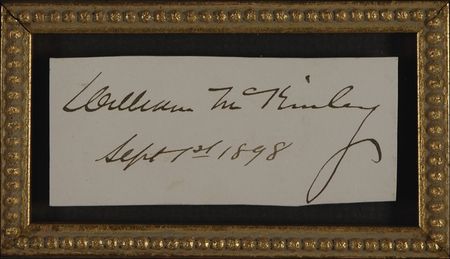 William McKinley
Sept 1st 1898